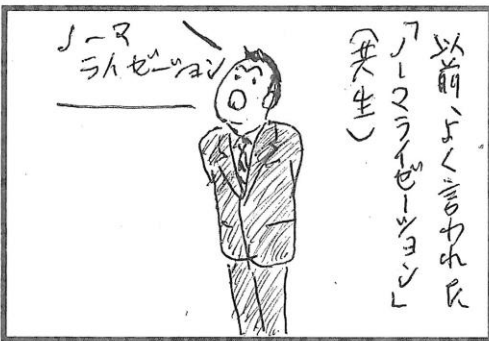 以前、よく言われた
「ノーマライゼーション」
(共生)
ノーマ
ライゼーション